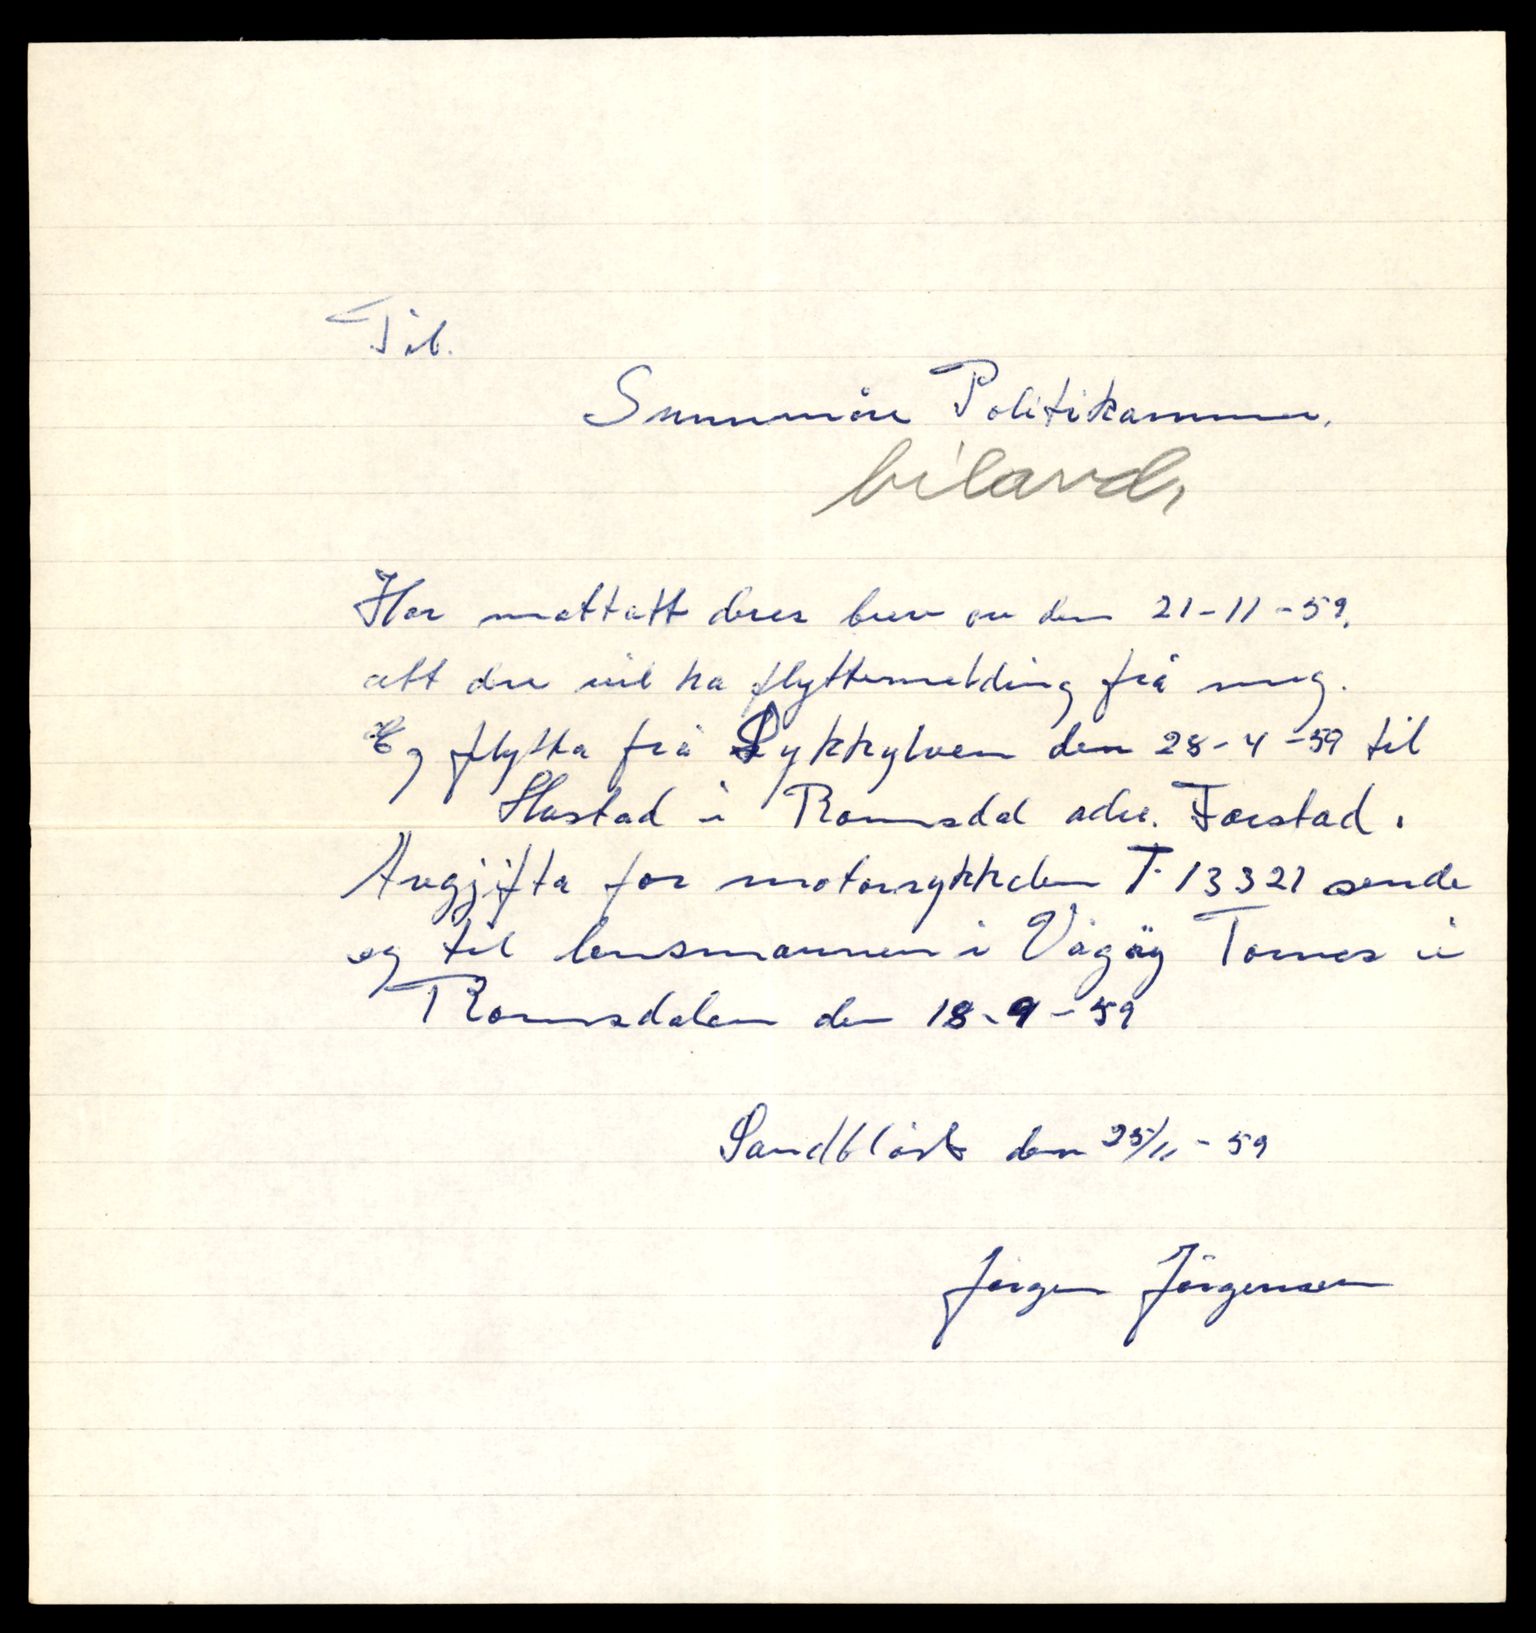 Til.
Sunnmöre Politikammer.
bilavd.
Har mottatt deres brev av den 21-11-59.
att dere vil ha flyttemelding frå meg.
Eg flytta frå Sykkylven den 28-4-59 til
Hustad i Romsdal adr. Farstad.
Avgjifta for motorsykkelen T-13321 sende
eg til lensmannen i Vågöy Tornes i
Romsdalen den 18-9-59
Sandblåst den 25/11-59
Jörgen Jörgensen